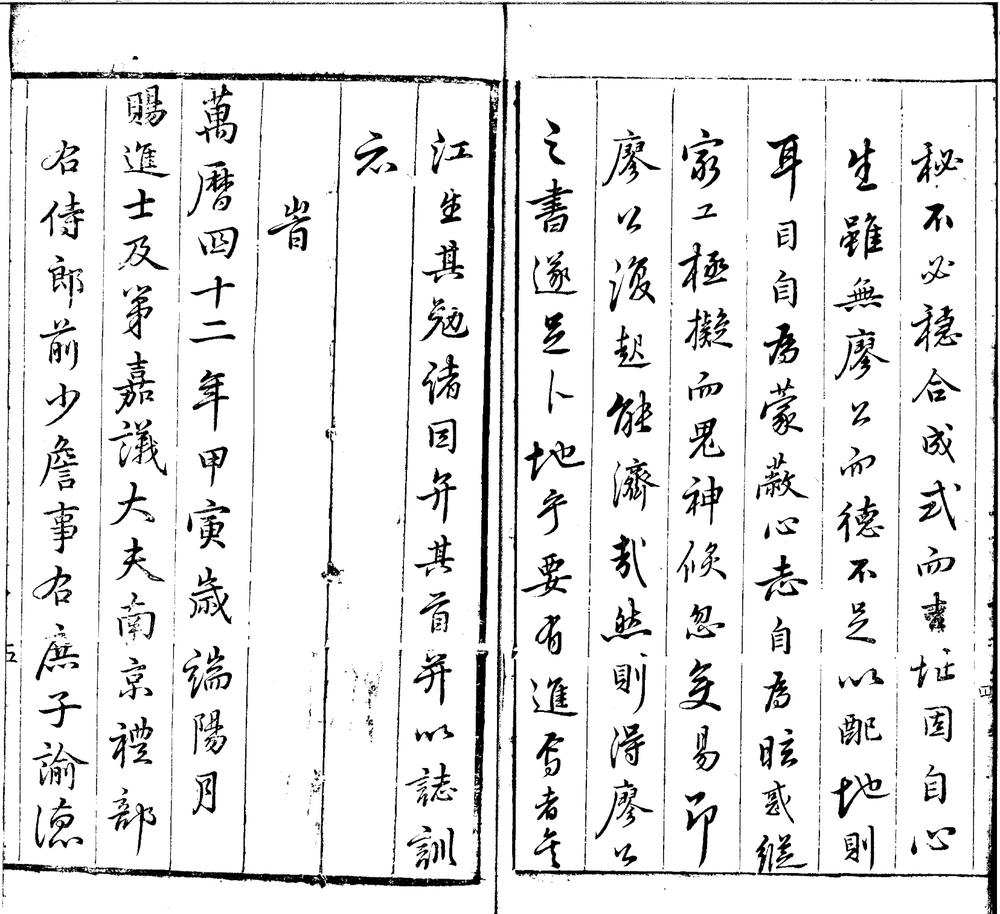 秘不必穩合成式而吉坵固自心
生雖無廖公而德不足以配地則
耳目自為蒙蔽心志自為眩惑縱
家工極擬而鬼神倐忽変易即
廖公復起能濟哉然則得廖公
之書遂足卜地乎要有進焉者矣
江生其勉諸因弁其首并以誌訓
云
旹
萬曆四十二年甲寅歲端陽月
賜進士及第嘉議大夫南京禮部
右侍郎前少詹事右庶子諭德
五
四